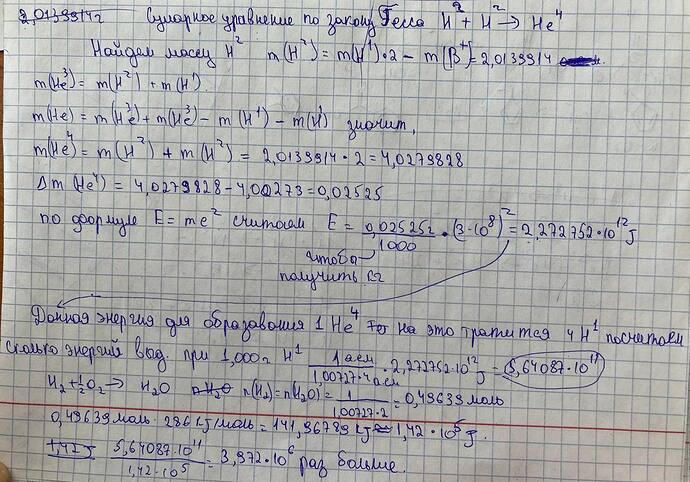 2,0139914
Сумарное уравнение по закону Гесса H² + H² → He⁴
Найдем массу H² m(H²) = m(H¹)·2 − m(β⁺) = 2,0139914
m(He³) = m(H²) + m(H¹)
m(He) = m(He³) + m(He³) − m(H¹) − m(H¹) значит,
m(He⁴) = m(H²) + m(H²) = 2,0139914 · 2 = 4,0279828
Δm(He⁴) = 4,0279828 − 4,00273 = 0,02525
по формуле E = mc² считаем E = 0,025252/1000 · (3·10⁸)² = 2,272752·10¹² J
чтобы
получить кг
Данная энергия для образования 1 He⁴ на это тратится 4 H¹ посчитаем
сколько энергий выд. при 1,000г H¹ 1 аем/1,00727·4 аем · 2,272752·10¹² J = 5,64087·10¹¹
H₂ + ½O₂ → H₂O n(H₂) = n(H₂O) = 1/1,00727·2 = 0,49639 моль
0,49639 моль · 286 kJ/моль = 141,96789 kJ ≈ 1,42·10⁵ J.
1,42 J 5,64087·10¹¹/1,42·10⁵ = 3,972·10⁶ раз больше.